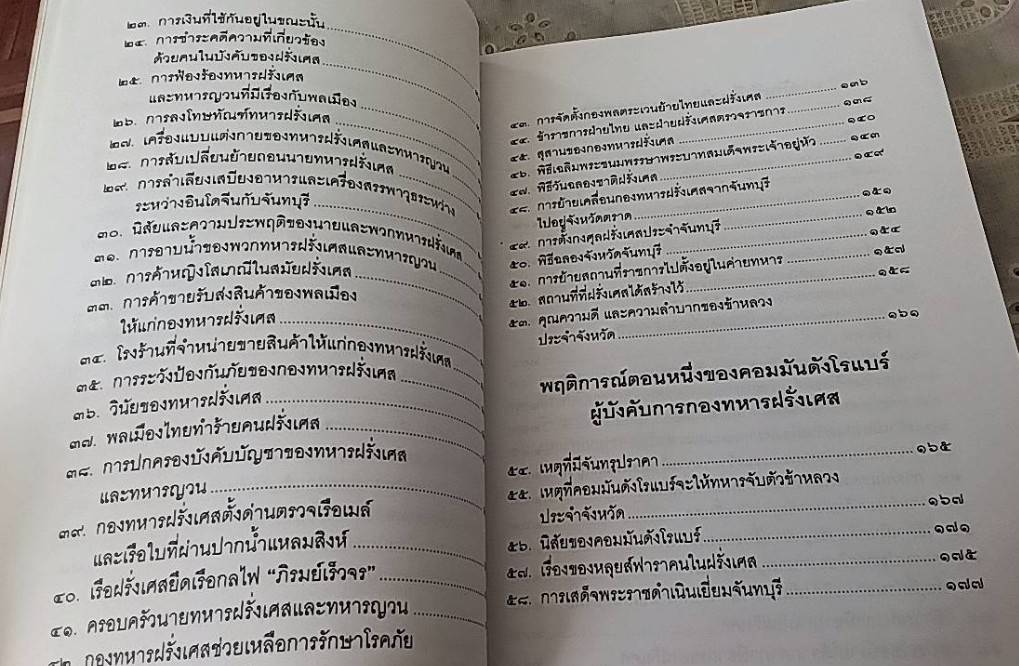 ๒๓. การเงินที่ใช้กันอยู่ในขณะนั้น
๒๔. การชำระคดีความที่เกี่ยวข้อง
ด้วยคนในบังคับของฝรั่งเศส
๒๕. การฟ้องร้องทหารฝรั่งเศส
และทหารญวนที่มีเรื่องกับพลเมือง
๒๖. การลงโทษทัณฑ์ทหารฝรั่งเศส
๒๗. เครื่องแบบแต่งกายของทหารฝรั่งเศสและทหารญวน
๒๘. การสับเปลี่ยนย้ายถอนนายทหารฝรั่งเศส
๒๙. การลำเลียงเสบียงอาหารและเครื่องสรรพาวุธระหว่าง
ระหว่างอินโดจีนกับจันทบุรี
๓๐. นิสัยและความประพฤติของนายและพวกทหารฝรั่งเศส
๓๑. การอาบน้ำของพวกทหารฝรั่งเศสและทหารญวน
๓๒. การค้าหญิงโสเภณีในสมัยฝรั่งเศส
๓๓. การค้าขายรับส่งสินค้าของพลเมือง
ให้แก่กองทหารฝรั่งเศส
๓๔. โรงร้านที่จำหน่ายขายสินค้าให้แก่กองทหารฝรั่งเศส
๓๕. การระวังป้องกันภัยของกองทหารฝรั่งเศส
๓๖. วินัยของทหารฝรั่งเศส
๓๗. พลเมืองไทยทำร้ายคนฝรั่งเศส
๓๘. การปกครองบังคับบัญชาของทหารฝรั่งเศส
และทหารญวน
๓๙. กองทหารฝรั่งเศสตั้งด่านตรวจเรือเมล์
และเรือใบที่ผ่านปากน้ำแหลมสิงห์
๔๐. เรือฝรั่งเศสยึดเรือกลไฟ “ภิรมย์เร็วจร”
๔๑. ครอบครัวนายทหารฝรั่งเศสและทหารญวน
๔๒. กองทหารฝรั่งเศสช่วยเหลือการรักษาโรคภัย
๔๓. การจัดตั้งกองพลตระเวนย้ายไทยและฝรั่งเศส ๑๓๖
๔๔. ข้าราชการฝ่ายไทย และฝ่ายฝรั่งเศสตรวจราชการ ๑๓๘
๔๕. สุสานของกองทหารฝรั่งเศส ๑๔๐
๔๖. พิธีเฉลิมพระชนมพรรษาพระบาทสมเด็จพระเจ้าอยู่หัว ๑๔๓
๔๗. พิธีวันฉลองชาติฝรั่งเศส ๑๔๙
๔๘. การย้ายเคลื่อนกองทหารฝรั่งเศสจากจันทบุรี
ไปอยู่จังหวัดตราด ๑๕๑
๔๙. การตั้งกงศุลฝรั่งเศสประจำจันทบุรี ๑๕๒
๕๐. พิธีฉลองจังหวัดจันทบุรี ๑๕๔
๕๑. การย้ายสถานที่ราชการไปตั้งอยู่ในค่ายทหาร ๑๕๗
๕๒. สถานที่ที่ฝรั่งเศสได้สร้างไว้ ๑๕๘
๕๓. คุณความดี และความลำบากของข้าหลวง
ประจำจังหวัด ๑๖๑
พฤติการณ์ตอนหนึ่งของคอมมันดังโรแบร์
ผู้บังคับการกองทหารฝรั่งเศส
๕๔. เหตุที่มีจันทรุปราคา ๑๖๕
๕๕. เหตุที่คอมมันดังโรแบร์จะให้ทหารจับตัวข้าหลวง
ประจำจังหวัด ๑๖๗
๕๖. นิสัยของคอมมันดังโรแบร์ ๑๗๑
๕๗. เรื่องของหลุยส์ฟาราคนในฝรั่งเศส ๑๗๕
๕๘. การเสด็จพระราชดำเนินเยี่ยมจันทบุรี ๑๗๗